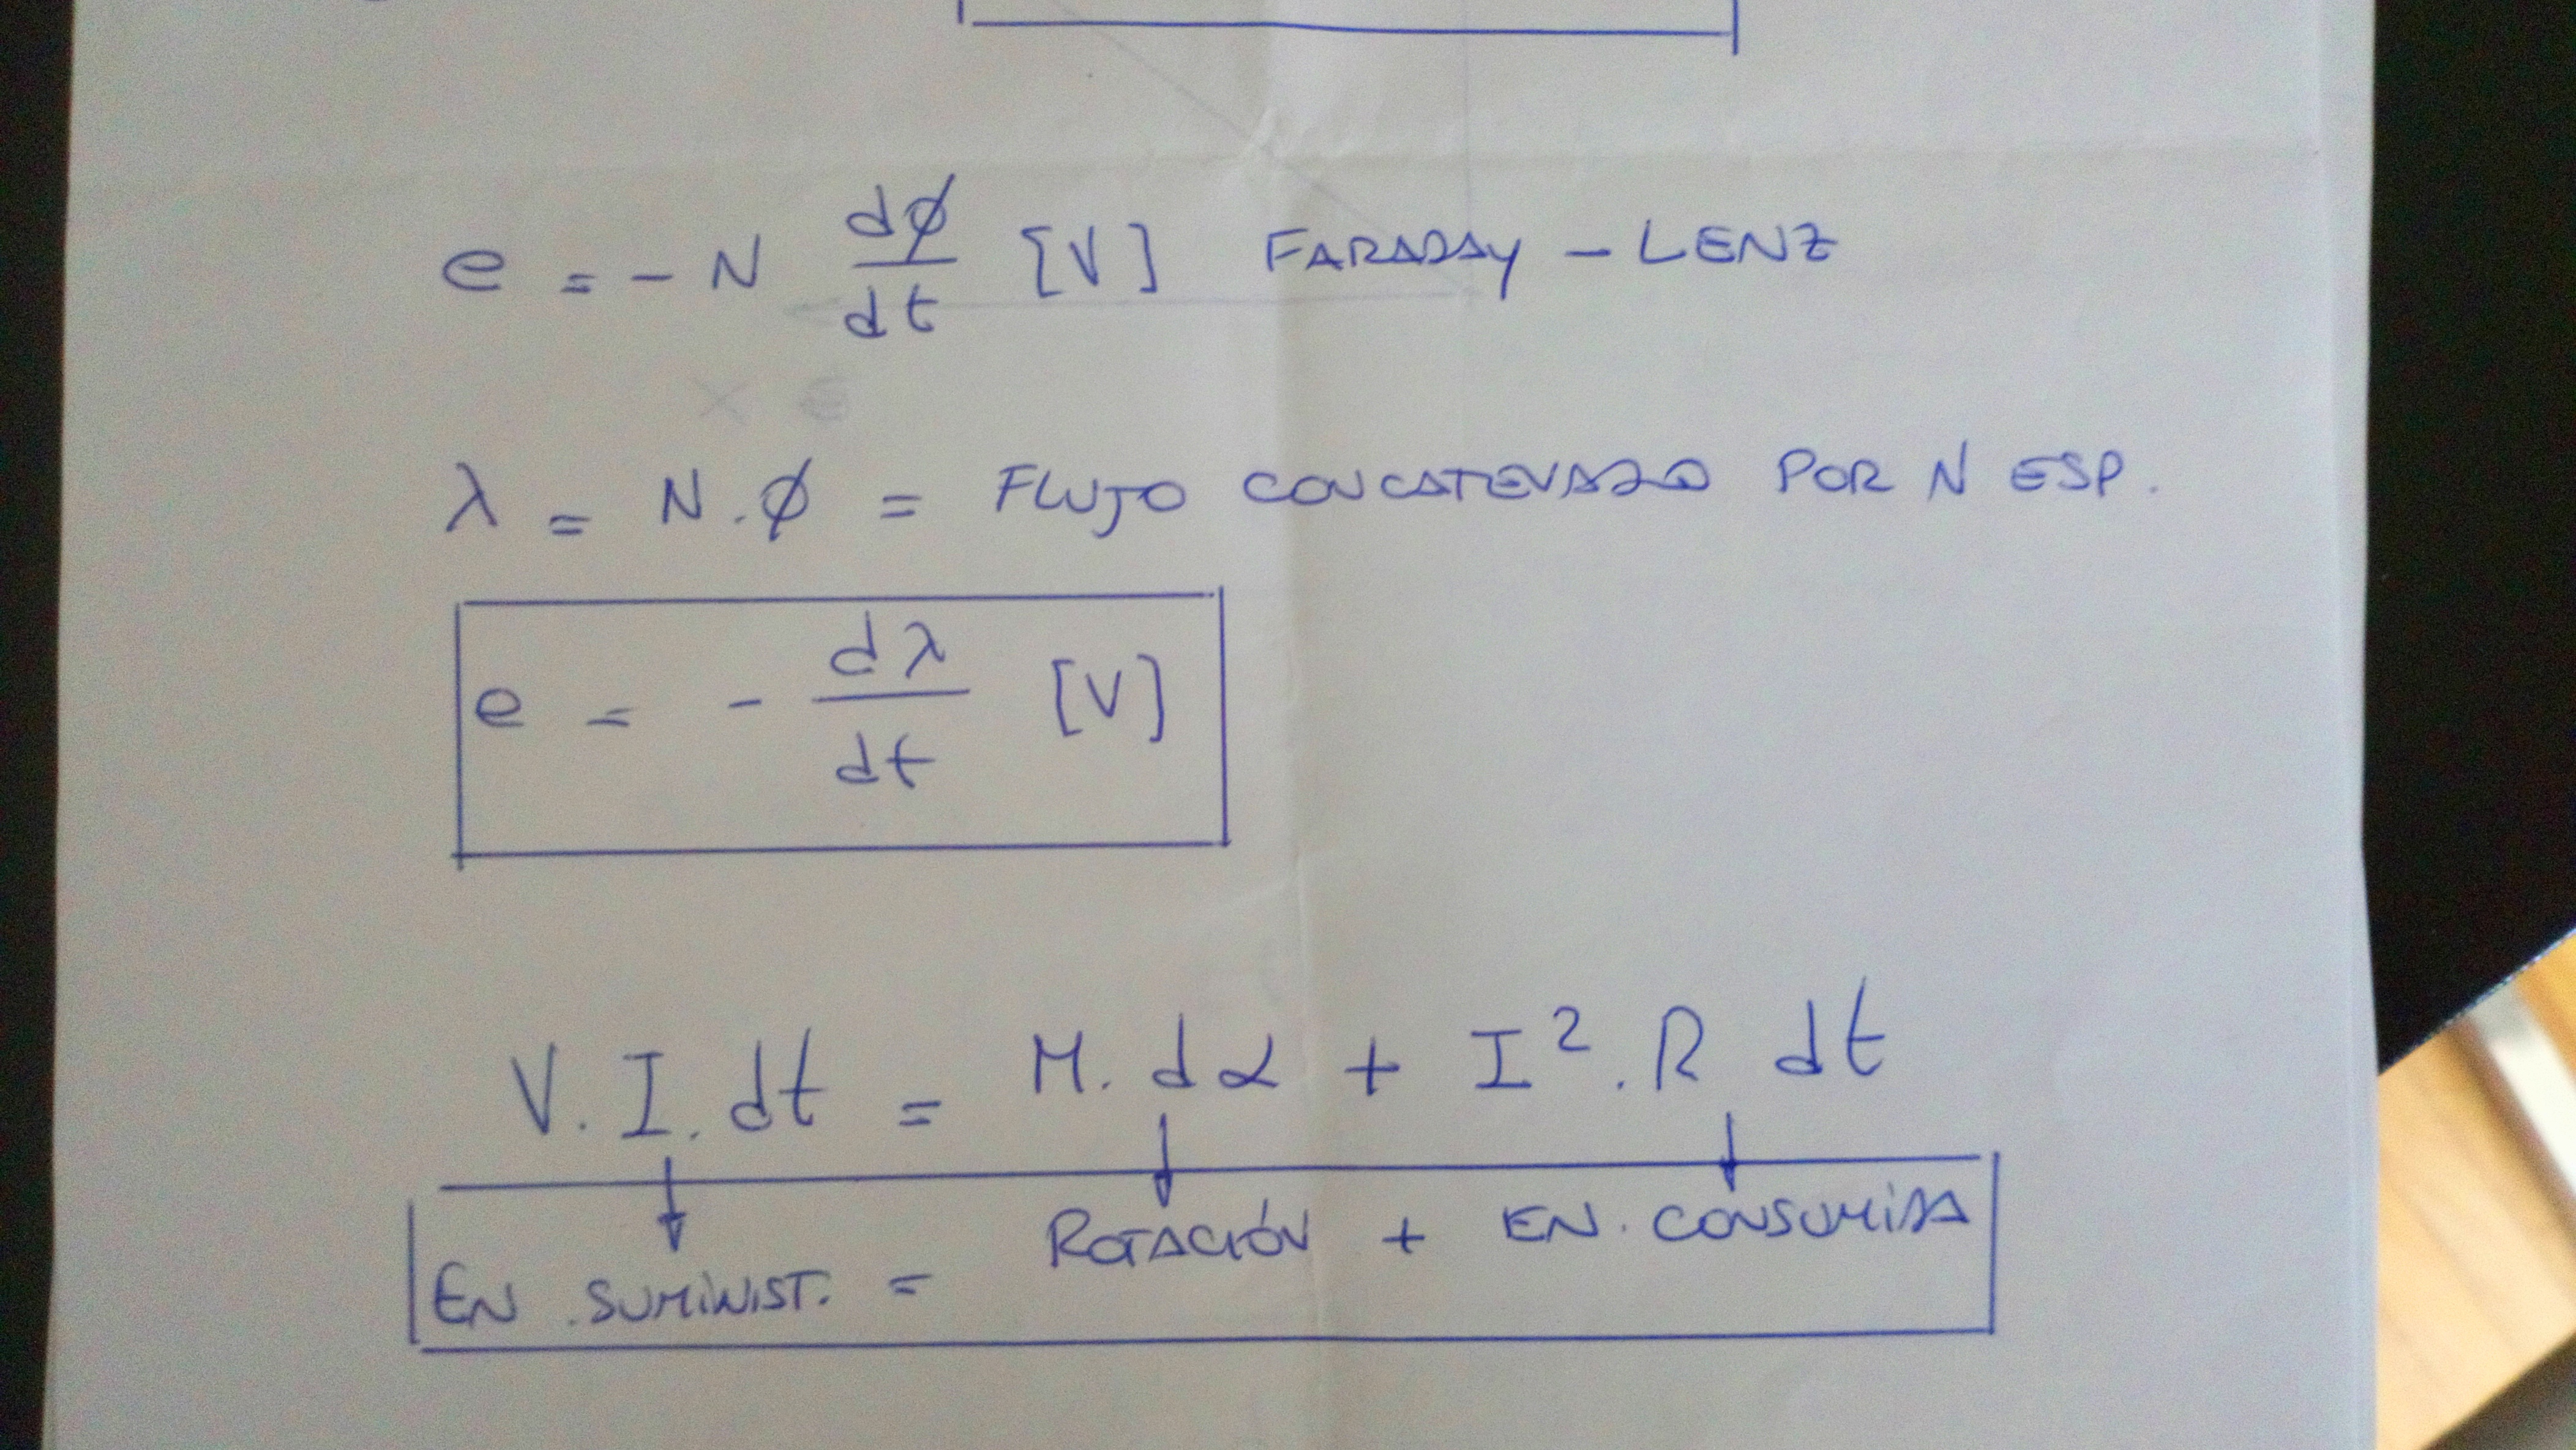 e = - N dϕ/dt [V] FARADAY - LENZ
λ = N.ϕ = FLUJO CONCATENADO POR N ESP.
e = - dλ/dt [V]
V. I. dt = M. dα + I². R dt
EN. SUMINIST. = ROTACIÓN + EN. CONSUMIDA